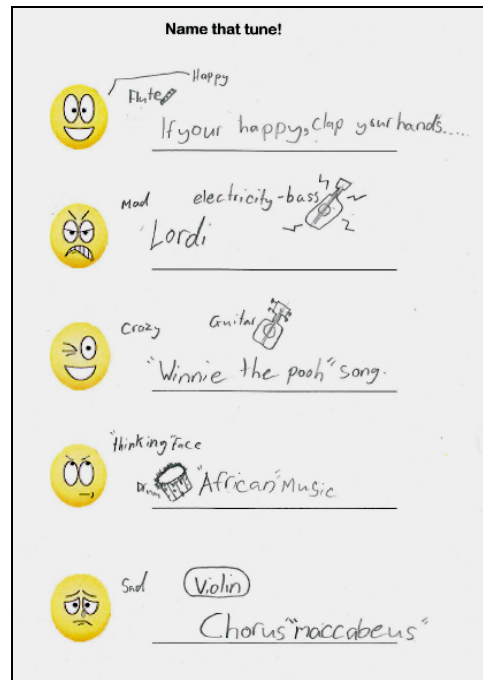 Name that tune!
Happy
Flute
If your happy, Clap your hands.....
Mad electricity-bass
Lordi
Crazy Guitar
"Winnie the pooh" song.
"thinking" Face
Drum "African" Music
Sad Violin
Chorus "maccabeus"